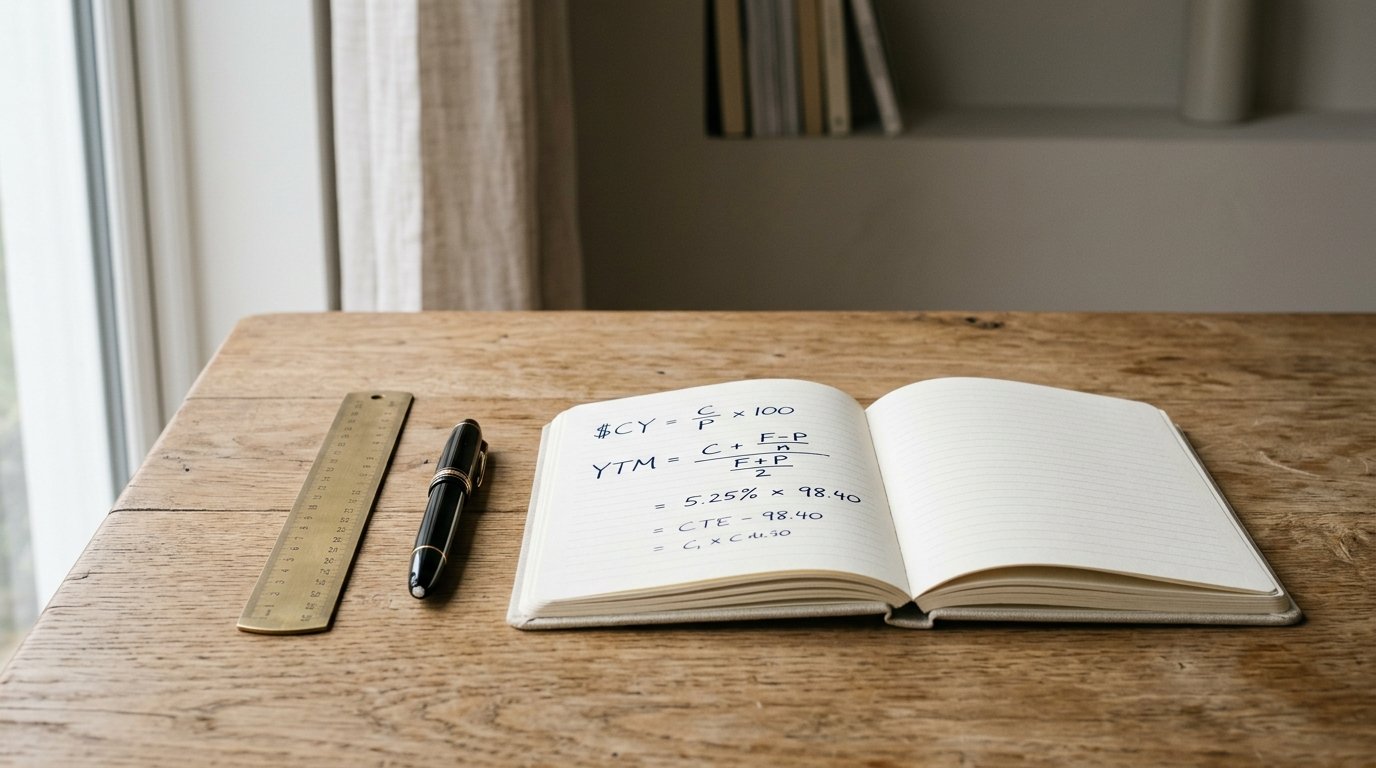 $CY = C/P × 100
YTM = (C + (F-P)/n) / ((F+P)/2)
= 5.25% × 98.40
= CTE - 98.40
= C, ×